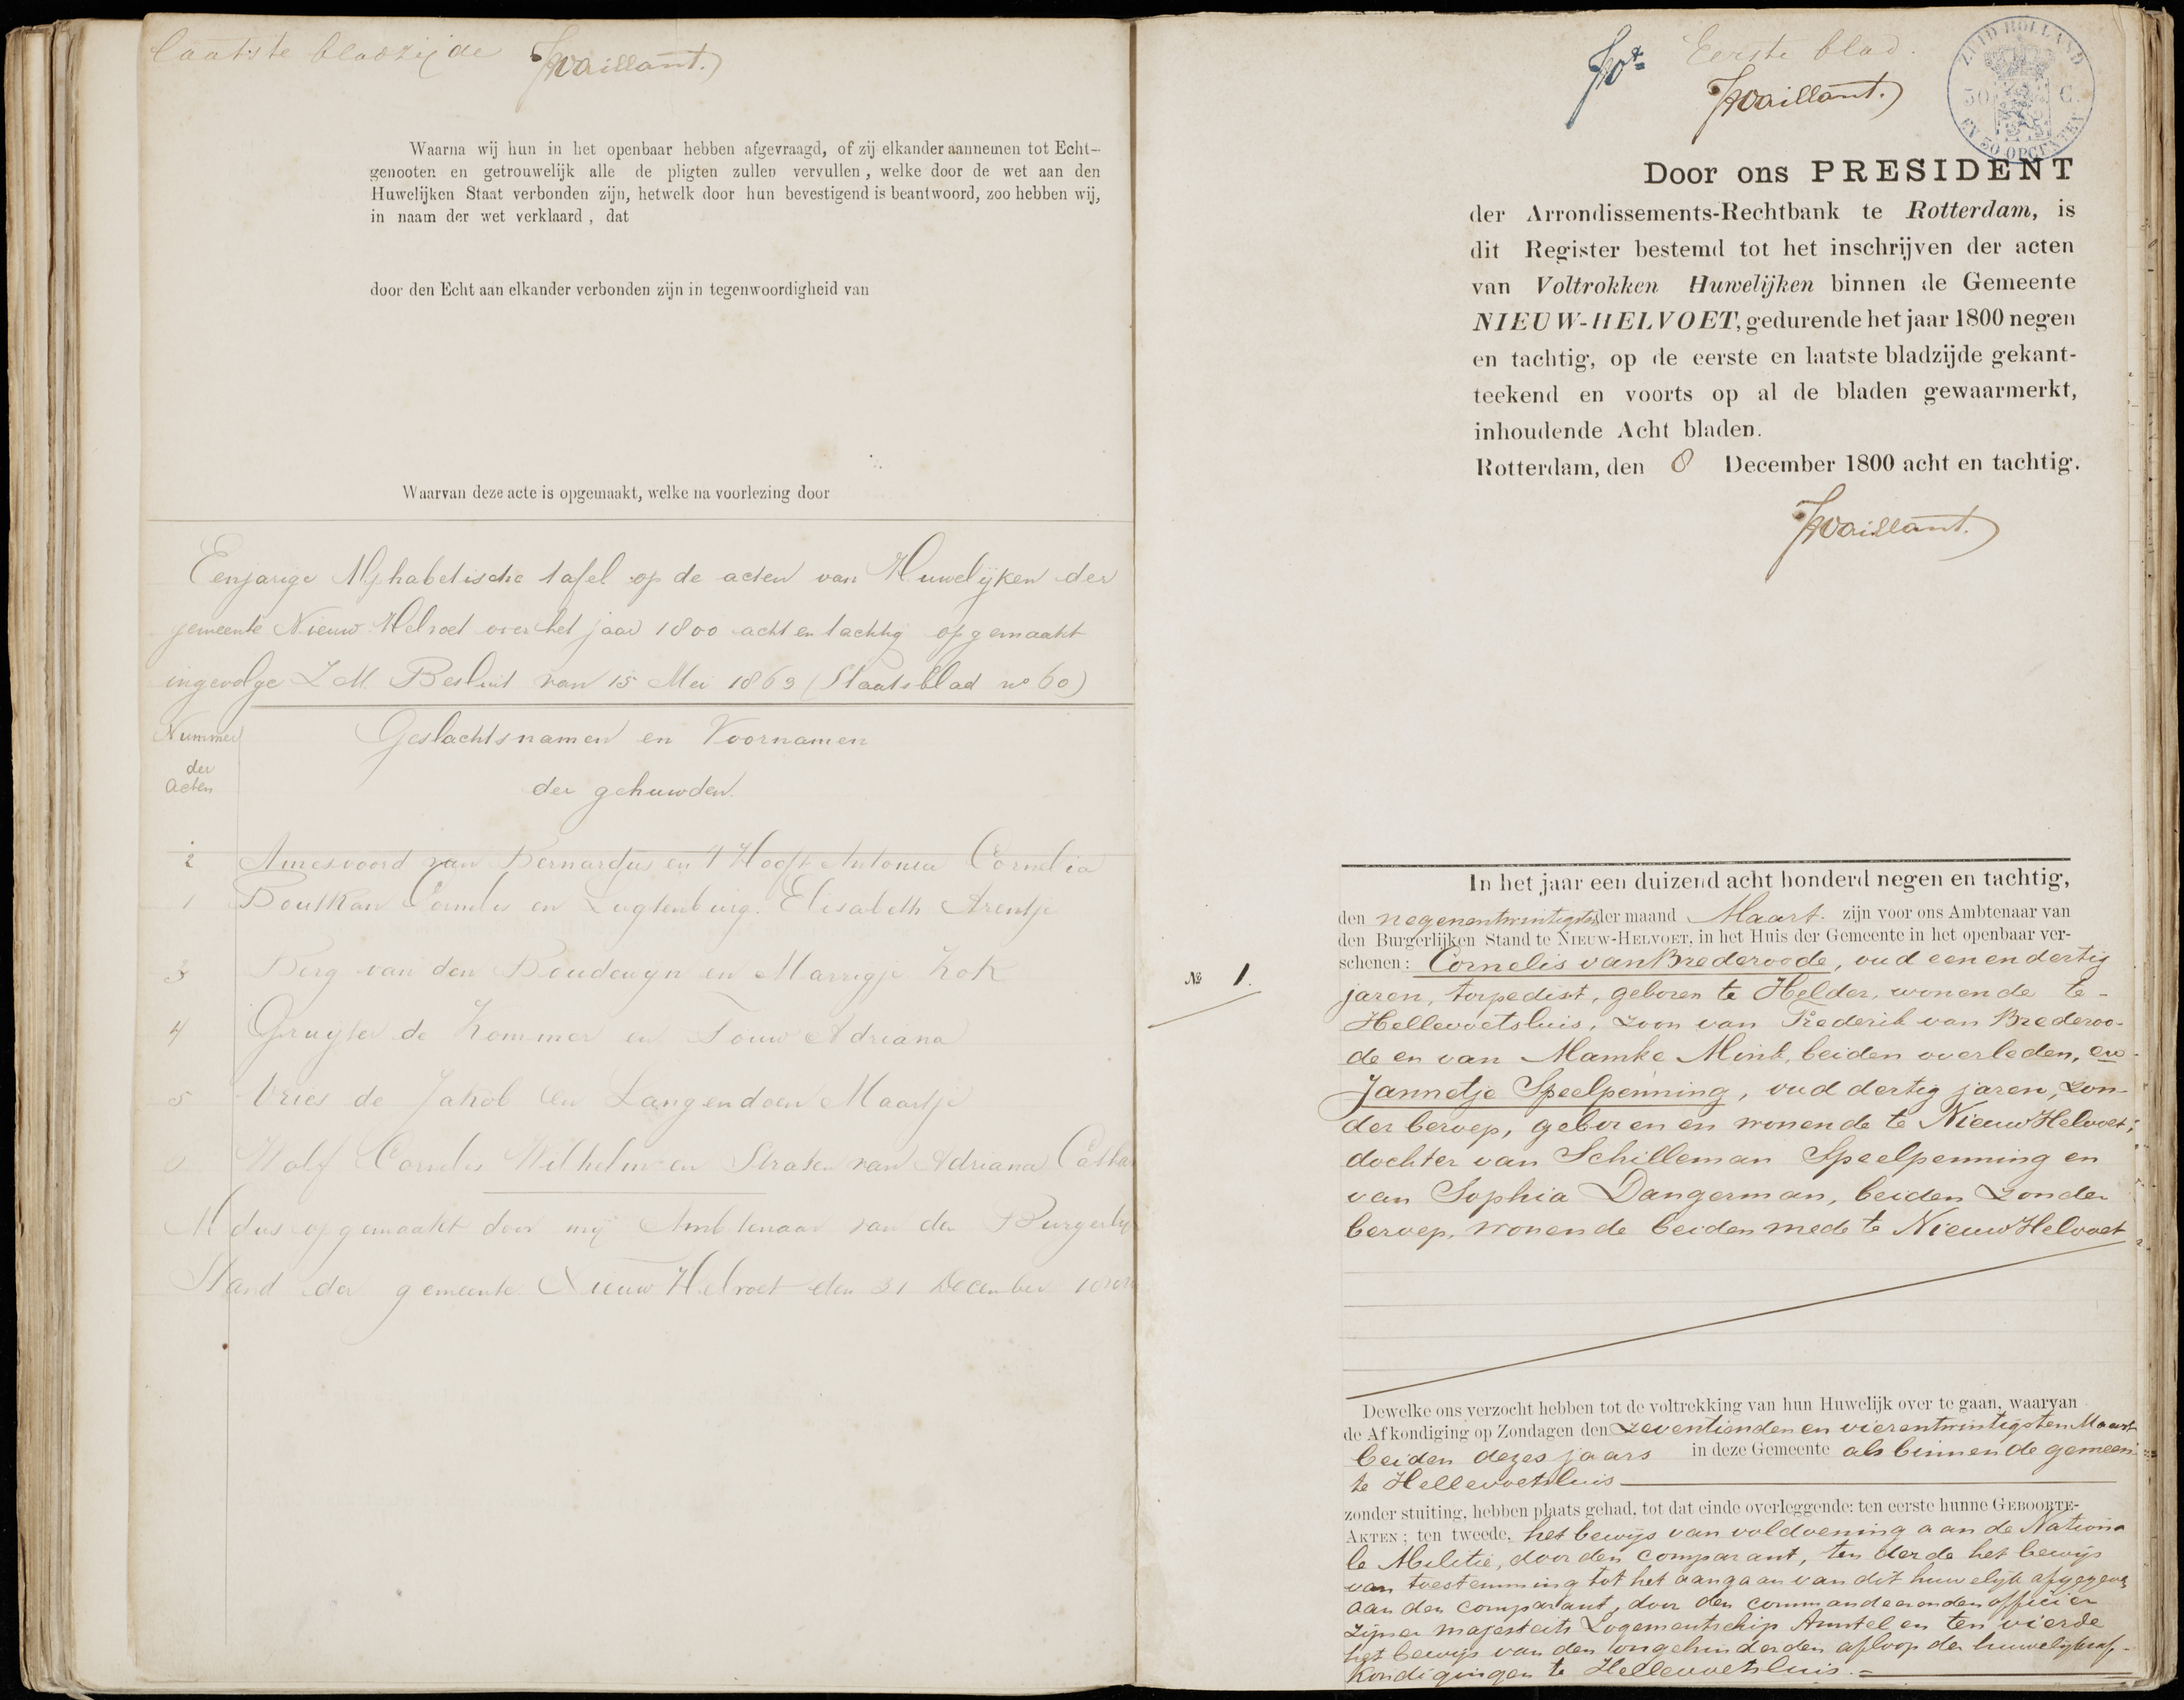 laatste bladzijde JPVaillant.)
Waarna wij hun in het openbaar hebben afgevraagd, of zij elkander aannemen tot Echt-
genooten en getrouwelijk alle de pligten zullen vervullen, welke door de wet aan den
Huwelijken Staat verbonden zijn, hetwelk door hun bevestigend is beantwoord, zoo hebben wij,
in naam der wet verklaard, dat
door den Echt aan elkander verbonden zijn in tegenwoordigheid van
Waarvan deze acte is opgemaakt, welke na voorlezing door
Eenjarige Alphabetische tafel op de acten van Huwelijken der
gemeente Nieuw Helvoet over het jaar 1800 acht en tachtig opgemaakt
ingevolge Z M. Besluit van 15 Mei 1863 (Staatsblad no 60)
Nummer
der
Acten
Geslachtsnamen en Voornamen
der gehuwden.
2 Amesvoord van Bernardus en 't Hooft Antonia Cornelia
1 Boutkan Cornelis en Lugtenburg. Elisabeth Arentje
3 Berg van den Boudewyn en Marrigje Kok
4 Gruyter de Kommer en Touw Adriana
5 Vries de Jakob en Langendoen Maartje
Wolf Cornelis Wilhelm en Straten van Adriana Catha
Aldus opgemaakt door mij Ambtenaar van den Burgerly
Stand der gemeente Nieuw Helvoet den 31 December
Eerste blad.
JPVaillant.)
ZUID HOLLAND
50 C.
EN 50 OPCENTEN
Door ons PRESIDENT
der Arrondissements-Rechtbank te Rotterdam, is
dit Register bestemd tot het inschrijven der acten
van Voltrokken Huwelijken binnen de Gemeente
NIEUW-HELVOET, gedurende het jaar 1800 negen
en tachtig, op de eerste en laatste bladzijde gekant-
teekend en voorts op al de bladen gewaarmerkt,
inhoudende Acht bladen.
Rotterdam, den 8 December 1800 acht en tachtig.
JPVaillant.)
In het jaar een duizend acht honderd negen en tachtig,
den negenentwintigsten der maand Maart. zijn voor ons Ambtenaar van
den Burgerlijken Stand te NIEUW-HELVOET, in het Huis der Gemeente in het openbaar ver-
schenen: Cornelis van Brederoode, oud een en dertig
№ 1.
jaren, torpedist, geboren te Helder, wonende te -
Hellevoetsluis, zoon van Frederik van Brederoo-
de en van Mamke Mink, beiden overleden, en
Jannetje Speelpenning, oud dertig jaren, zon-
der beroep, geboren en wonende te Nieuw Helvoet,
dochter van Schilleman Speelpenning en
van Sophia Dangerman, beiden zonder
beroep, wonende beiden mede te Nieuw Helvoet
Dewelke ons verzocht hebben tot de voltrekking van hun Huwelijk over te gaan, waarvan
de Afkondiging op Zondagen den zeventienden en vierentwintigsten Maart
beiden dezes jaars in deze Gemeente als binnen de gemeen-
te Hellevoetsluis
zonder stuiting, hebben plaats gehad, tot dat einde overleggende: ten eerste hunne GEBOORTE-
AKTEN; ten tweede, het bewijs van voldoening aan de Nationa
le Militie, door den comparant, ten derde het bewijs
van toestemming tot het aangaan van dit huwelijk afgegeven
aan den comparant, door den commandeerenden officier
Zijner Majesteits Logementschip Amstel en ten vierde
het bewijs van den ongehinderden afloop der huwelijksaf-
kondigingen te Hellevoetsluis. =